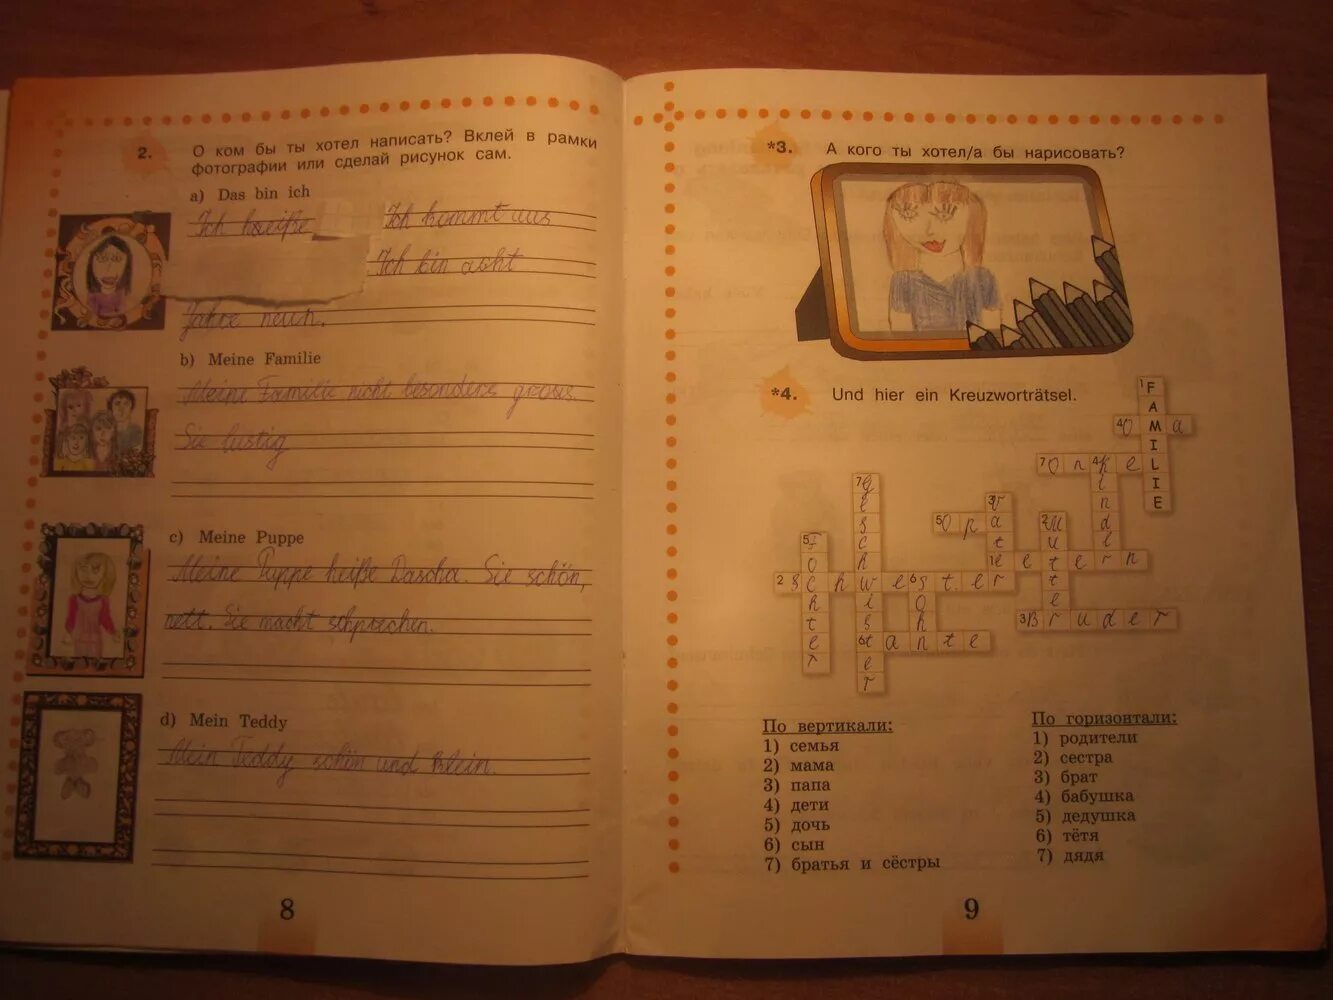 2. О ком бы ты хотел написать? Вклей в рамки
фотографии или сделай рисунок сам.
a) Das bin ich
Ich heiße Ich kommt aus
Ich bin acht
Jahre neun.
b) Meine Familie
Meine Familie nicht besonders gross.
Sie lustig
c) Meine Puppe
Meine Puppe heiße Dascha. Sie schön,
nett. Sie macht
d) Mein Teddy
Mein Teddy schön und klein.
8
*3. А кого ты хотел/а бы нарисовать?
*4. Und hier ein Kreuzworträtsel.
FAMILIE
Oma
Onkel
Kinder
Geschwister
Vater
Opa
Mutter
Tochter
Eltern
Schwester
Sohn
Bruder
Tante
По вертикали:
1) семья
2) мама
3) папа
4) дети
5) дочь
6) сын
7) братья и сёстры
По горизонтали:
1) родители
2) сестра
3) брат
4) бабушка
5) дедушка
6) тётя
7) дядя
9